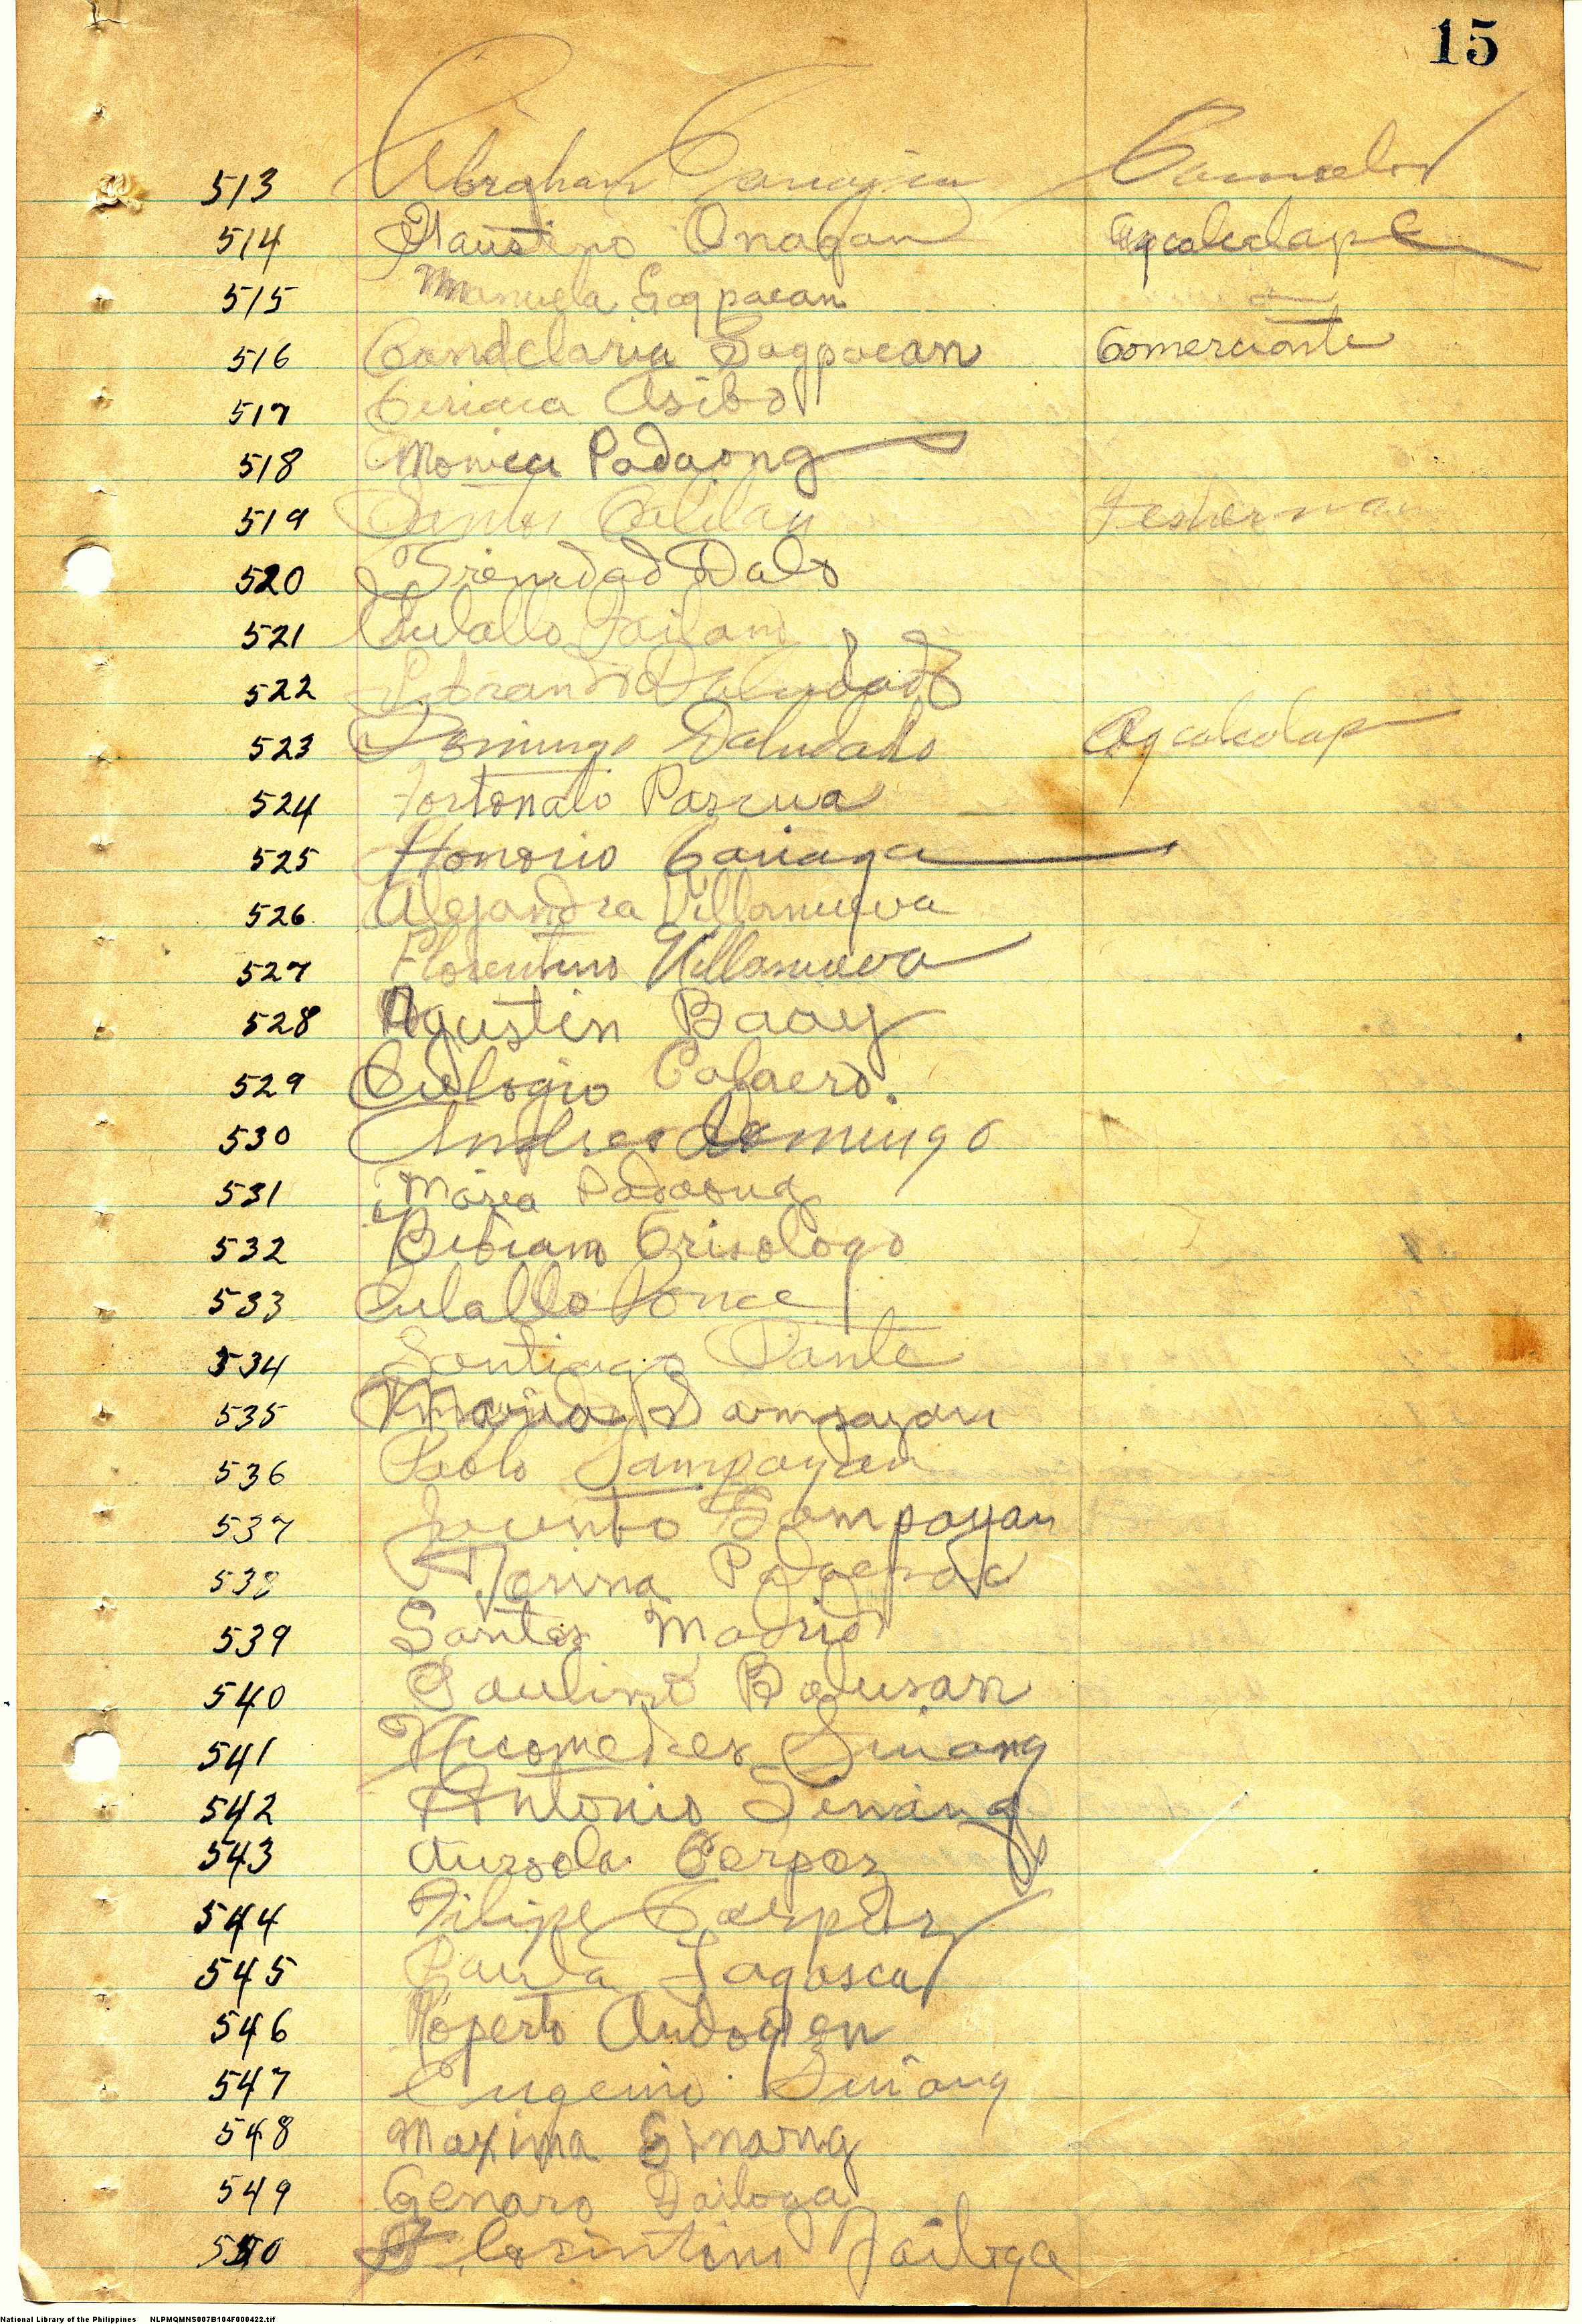 15
513 Abraham Councelor
514 Faustino Onagan Agcalcalap
515 Manuela Gagpacan
516 Candelaria Gagpacan Comerciante
517 Ciriaca Asibo
518 Monica Padaong
519 Fesherman
520 Trenidad Dalo
521 Eulallo Jailani
522
523 Domingo Daludado Agcalcalap
524 Fortonato Pascua
525 Honorio Cariaga
526 Alejandra Villanueva
527 Florentino Villanueva
528 Agustin Baay
529 Eulogio Calaero.
530 Andres domingo
531 Maria Padaong
532 Bibiano Crisologo
533 Eulallo Ponce
534 Santiago Dante
535 Sampayan
536 Pablo Sampayan
537 Jacinto Sampayan
538
539 Santos Madrid
540 Paulino Balusan
541 Nicomedes Sinang
542 Antonio Sinang
543 Aursola Corpoz
544 Filipe Corpuz
545 Paula Lagasca
546 Roperto Andogien
547 Eugenio Sinang
548 Maxima Sinang
549 Genaro Dailoga
550 Florintino Jailoga
National Library of the Philippines NLPMQMNS007B104F000422.tif